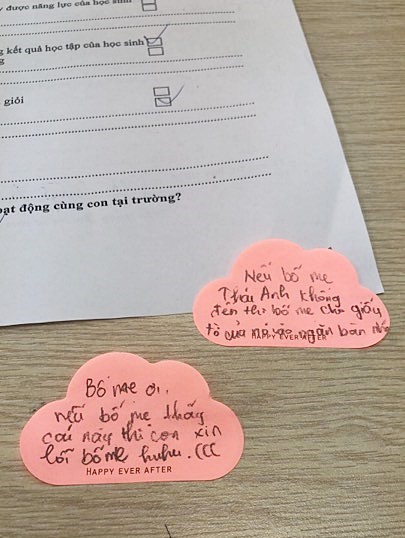 được năng lực của học sinh
kết quả học tập của học sinh
g
giỏi
ạt động cùng con tại trường?
Nếu bố mẹ
Thái Anh không
đến thì bố mẹ cứ giấu
tờ của nó vào ngăn bàn nhé
HAPPY EVER AFTER
Bố mẹ ơi,
nếu bố mẹ thấy
cái này thì con xin
lỗi bố mẹ huhu.(((
HAPPY EVER AFTER